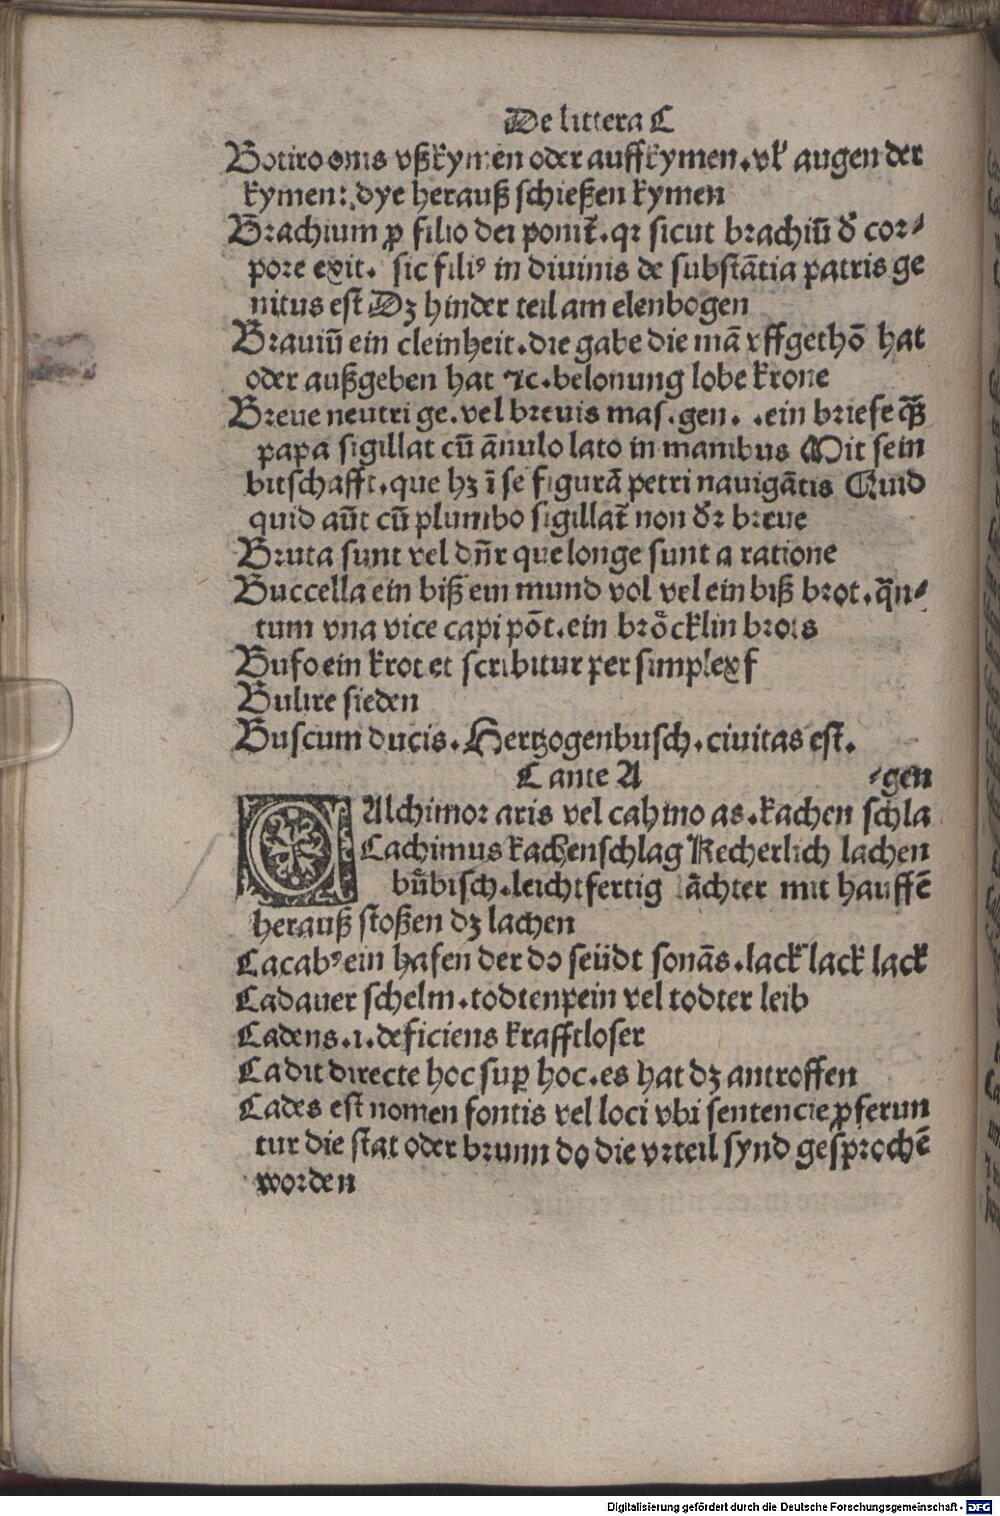 De littera C
Botiro onis vßkymen oder auffkymen. vl' augen der
kymen: dye herauß schießen kymen
Brachium ꝓ filio dei ponit̃. qꝛ sicut brachiū d' coꝛ⸗
poꝛe exit. sic filiꝰ in diuinis de substātia patris ge
nitus est Dꝫ hinder teil am elenbogen
Brauiū ein cleinheit. die gabe die mā vffgethō hat
oder außgeben hat ⁊c. belonung lobe krone
Breue neutri ge. vel bꝛeuis mas. gen. . ein bꝛiefe
papa sigillat cū ānulo lato in manibus Mit sein
bitschafft. que hꝫ ī se figurā petri nauigātis Quid
quid aūt cū plumbo sigillat̃ non d'ꝛ bꝛeue
Bruta sunt vel dn̄r que longe sunt a ratione
Buccella ein biß ein mund vol vel ein biß bꝛot. qn̄⸗
tum vna vice capi pōt. ein bꝛoͤcklin bꝛots
Bufo ein krot et scribitur per simplex f
Bulire sieden
Buscum ducis. Hertzogenbusch. ciuitas est.
C ante A ⸗gen
CAlchinoꝛ aris vel cahino as. kachen schla
Cachimus kachenschlag Kecherlich lachen
buͤbisch. leichtfertig lāchter mit hauffē
herauß stoßen dꝫ lachen
Cacabꝰ ein hafen der do seüdt sonās. lack lack lack
Cadauer schelm. todtenpein vel todter leib
Cadens. i. deficiens krafftloser
Cadit directe hoc suꝑ hoc. es hat dꝫ antroffen
Cades est nomen fontis vel loci vbi sentencie ꝓferun
tur die stat oder bꝛunn do die vꝛteil synd gespꝛochē
woꝛden
Digitalisierung gefördert durch die Deutsche Forschungsgemeinschaft - DFG